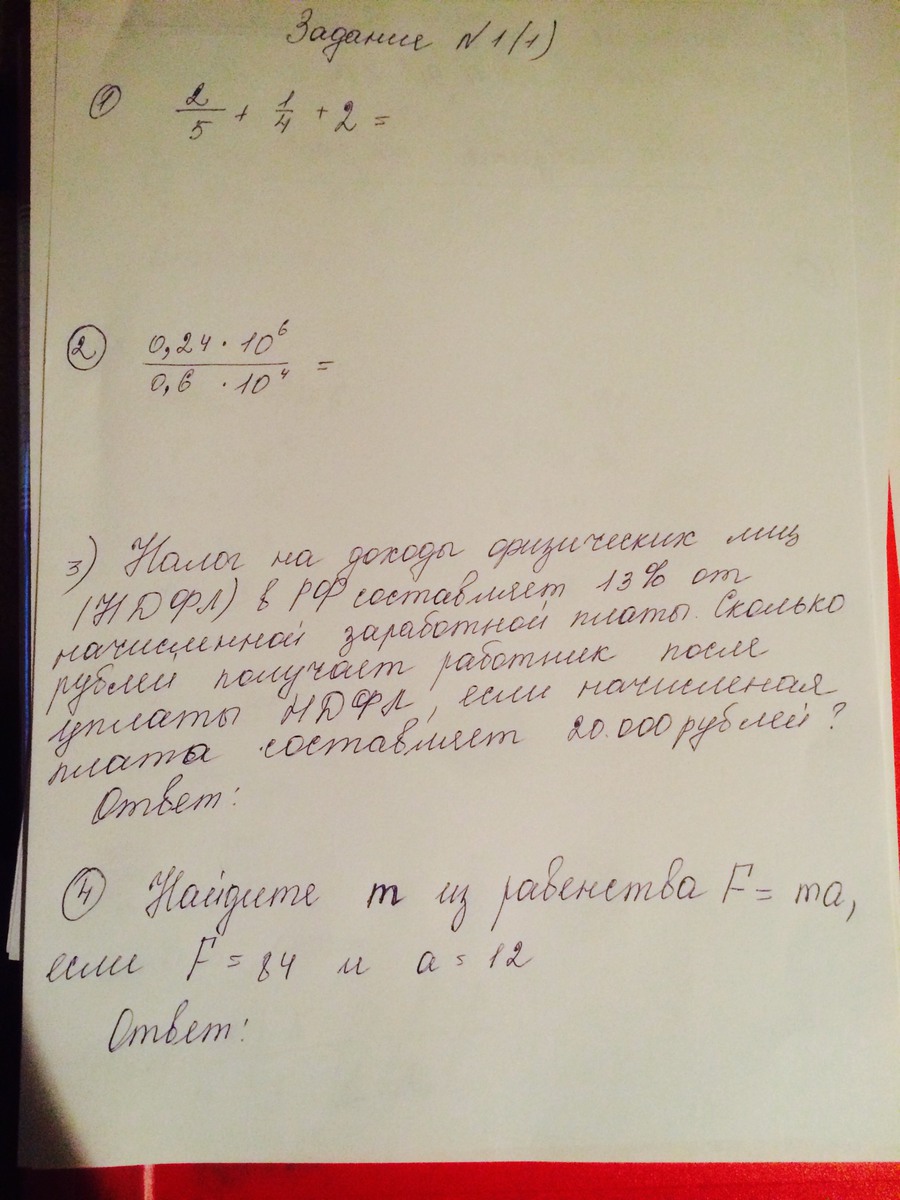 Задание N1(1)
① 2/5 + 1/4 + 2 =
② 0,24 · 10⁶ / 0,6 · 10⁴ =
3) Налог на доходы физических лиц
(НДФЛ) в РФ составляет 13% от
начисленной заработной платы. Сколько
рублей получает работник после
уплаты НДФЛ, если начисленая
плата составляет 20.000 рублей?
Ответ:
④ Найдите m из равенства F = ma,
если F = 84 и a = 12
Ответ: